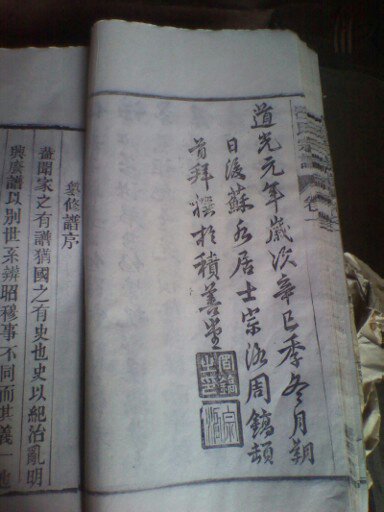 道光元年歲次辛巳季冬月朔
日後蘇水居士宗海周鎬頓
首拜撰於積善堂
重修譜序
蓋聞家之有譜猶國之有史也史以紀治亂明
興廢譜以別世系辨昭穆事不同而其義一也